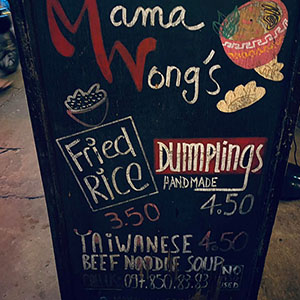 Mama
Wong's
Fried
RiCE
3.50
DUmmpLiNgs
HANDMADE
4.50
TAiWANESE 4.50
BEEF NOODLE SOUP
097.850.83.83
NO